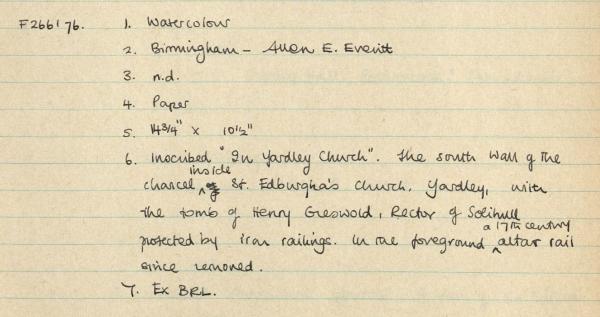 F266'76. 1. Watercolour
2. Birmingham - Allen E. Everitt
3. n.d.
4. Paper
5. 14 3/4" x 10 1/2"
6. Inscribed "In Yardley Church". The south wall of the
chancel inside St. Edburgha's Church, Yardley, with
the tomb of Henry Greswold, Rector of Solihull
protected by iron railings. In the foreground a 17th century altar rail
since removed.
7. Ex BRL.